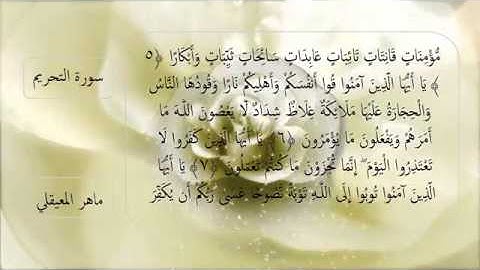 مُّؤْمِنَاتٍ قَانِتَاتٍ تَائِبَاتٍ عَابِدَاتٍ سَائِحَاتٍ ثَيِّبَاتٍ وَأَبْكَارًا ﴿٥
﴾ يَا أَيُّهَا الَّذِينَ آمَنُوا قُوا أَنْفُسَكُمْ وَأَهْلِيكُمْ نَارًا وَقُودُهَا النَّاسُ
وَالْحِجَارَةُ عَلَيْهَا مَلَائِكَةٌ غِلَاظٌ شِدَادٌ لَّا يَعْصُونَ اللَّهَ مَا
أَمَرَهُمْ وَيَفْعَلُونَ مَا يُؤْمَرُونَ ﴿٦﴾ يَا أَيُّهَا الَّذِينَ كَفَرُوا لَا
تَعْتَذِرُوا الْيَوْمَ ۖ إِنَّمَا تُجْزَوْنَ مَا كُنتُمْ تَعْمَلُونَ ﴿٧﴾ يَا أَيُّهَا
الَّذِينَ آمَنُوا تُوبُوا إِلَى اللَّهِ تَوْبَةً نَّصُوحًا عَسَىٰ رَبُّكُمْ أَن يُكَفِّرَ
سورة التحريم
ماهر المعيقلي